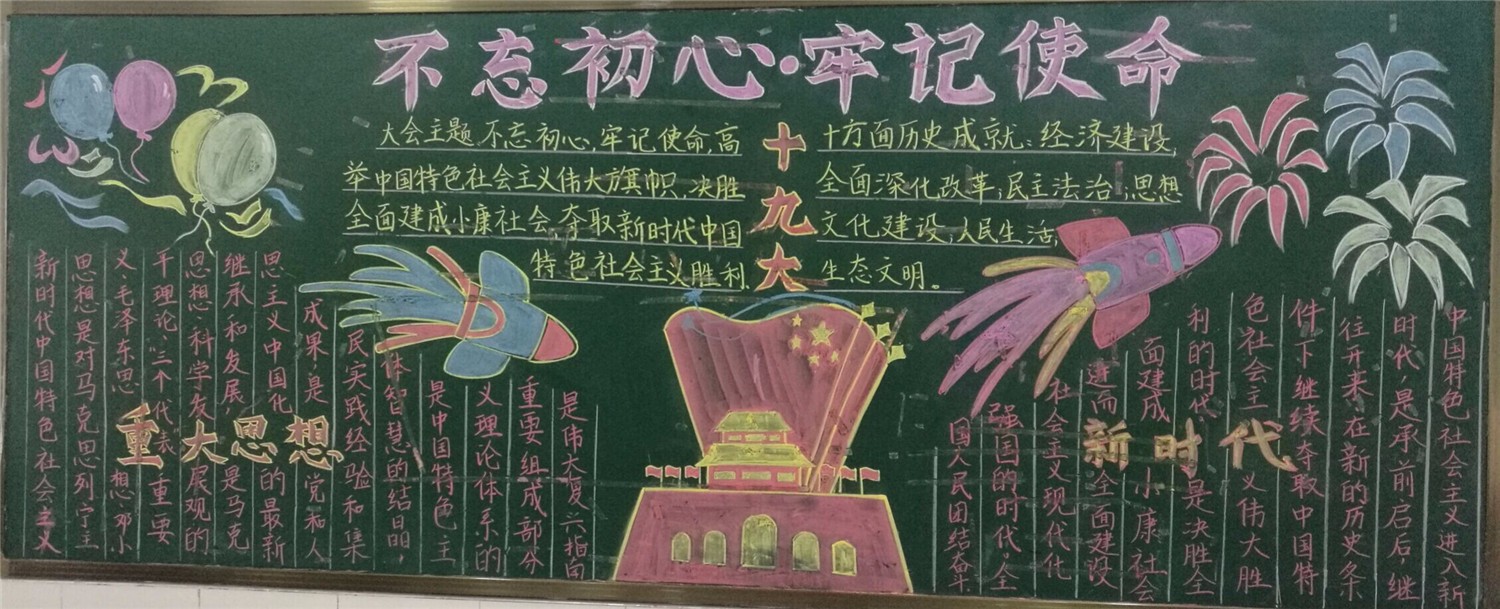 不忘初心·牢记使命
大会主题 不忘初心,牢记使命,高
举中国特色社会主义伟大旗帜,决胜
全面建成小康社会,夺取新时代中国
特色社会主义胜利.
十九大
十方面历史成就:经济建设,
全面深化改革;民主法治;思想
文化建设;人民生活,
生态文明。
重大思想
新时代中国特色社会主义
思想是对马克思列宁主
义、毛泽东思想、邓小
平理论、三个代表重要
思想科学发展观的
继承和发展,是马克
思主义中国化的最新
成果,是党和人
民实践经验和集
体智慧的结晶,
是中国特色主
义理论体系的
重要组成部分
是伟大复 指南
新时代
中国特色社会主义进入新
时代,是承前后后,继
往开来在新的历史条
件下继续夺取中国特
色社会主义伟大胜
利的时代,是决胜全
面建成小康社会
进而全面建设
社会主义现代化
强国的时代.全
国人民团结奋斗